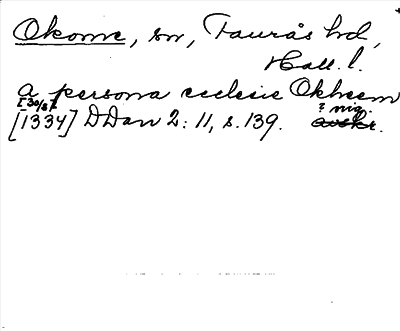 Okome, sn, Faurås hd,
Hall. l.
a persona ecclesie Okheem
[30/8]
[1334] DDan 2: 11, s. 139. ? nig. avskr.